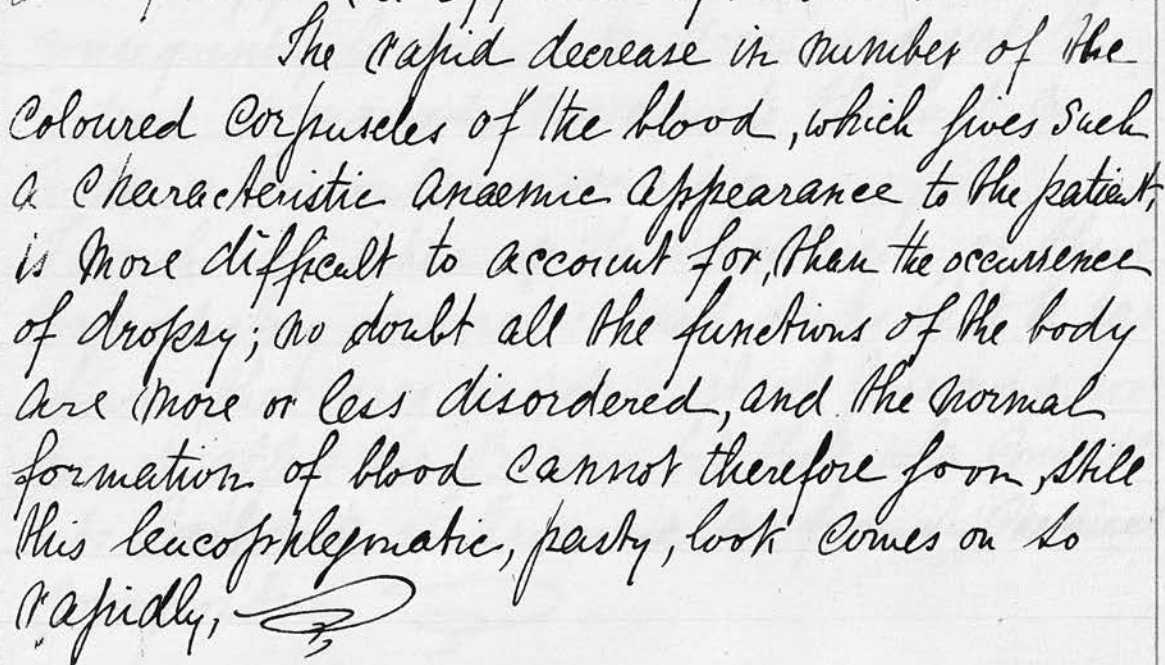 The rapid decrease in number of the
coloured corpuscles of the blood, which gives such
a characteristic anaemic appearance to the patient,
is more difficult to account for, than the occurrence
of dropsy; no doubt all the functions of the body
are more or less disordered, and the normal
formation of blood cannot therefore go on, still
this leucophlegmatic, pasty, look comes on so
rapidly,